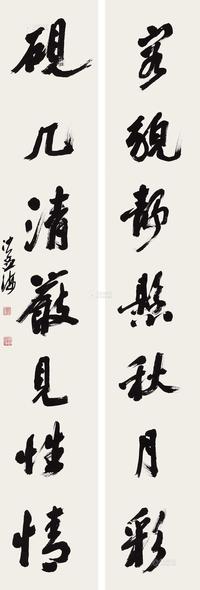 容貌静悬秋月彩
砚几清严见性情
沙孟海